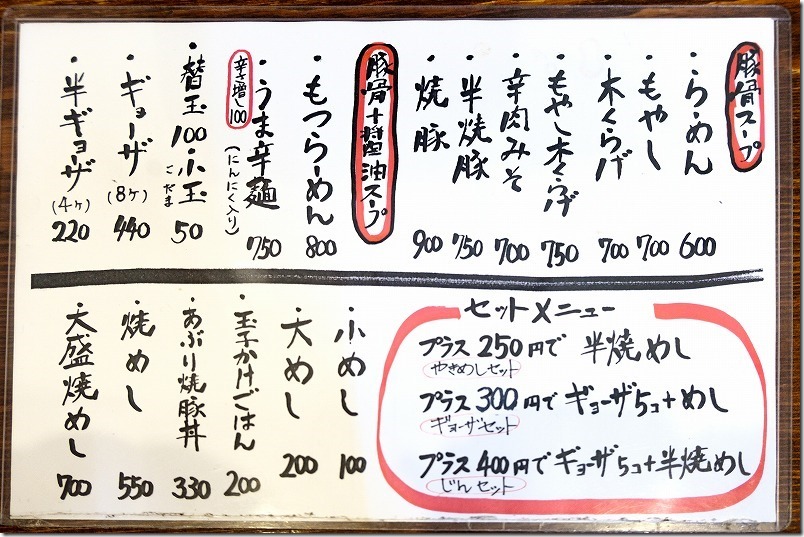 豚骨スープ
・らーめん 600
・もやし 700
・木くらげ 700
・もやし木くらげ 750
・辛肉みそ 700
・半焼豚 750
・焼豚 900
豚骨+醤油スープ
・もつらーめん 800
・うま辛麺 750
(にんにく入り)
辛さ増し100
・替玉100 小玉 50
こだま
・ギョーザ(8ヶ) 440
・半ギョーザ(4ヶ) 220
セットメニュー
プラス250円で 半焼めし
やきめしセット
プラス300円で ギョーザ5コ+めし
ギョーザセット
プラス400円で ギョーザ5コ+半焼めし
じんセット
・小めし 100
・大めし 200
・玉子かけごはん 200
・あぶり焼豚丼 330
・焼めし 550
・大盛焼めし 700